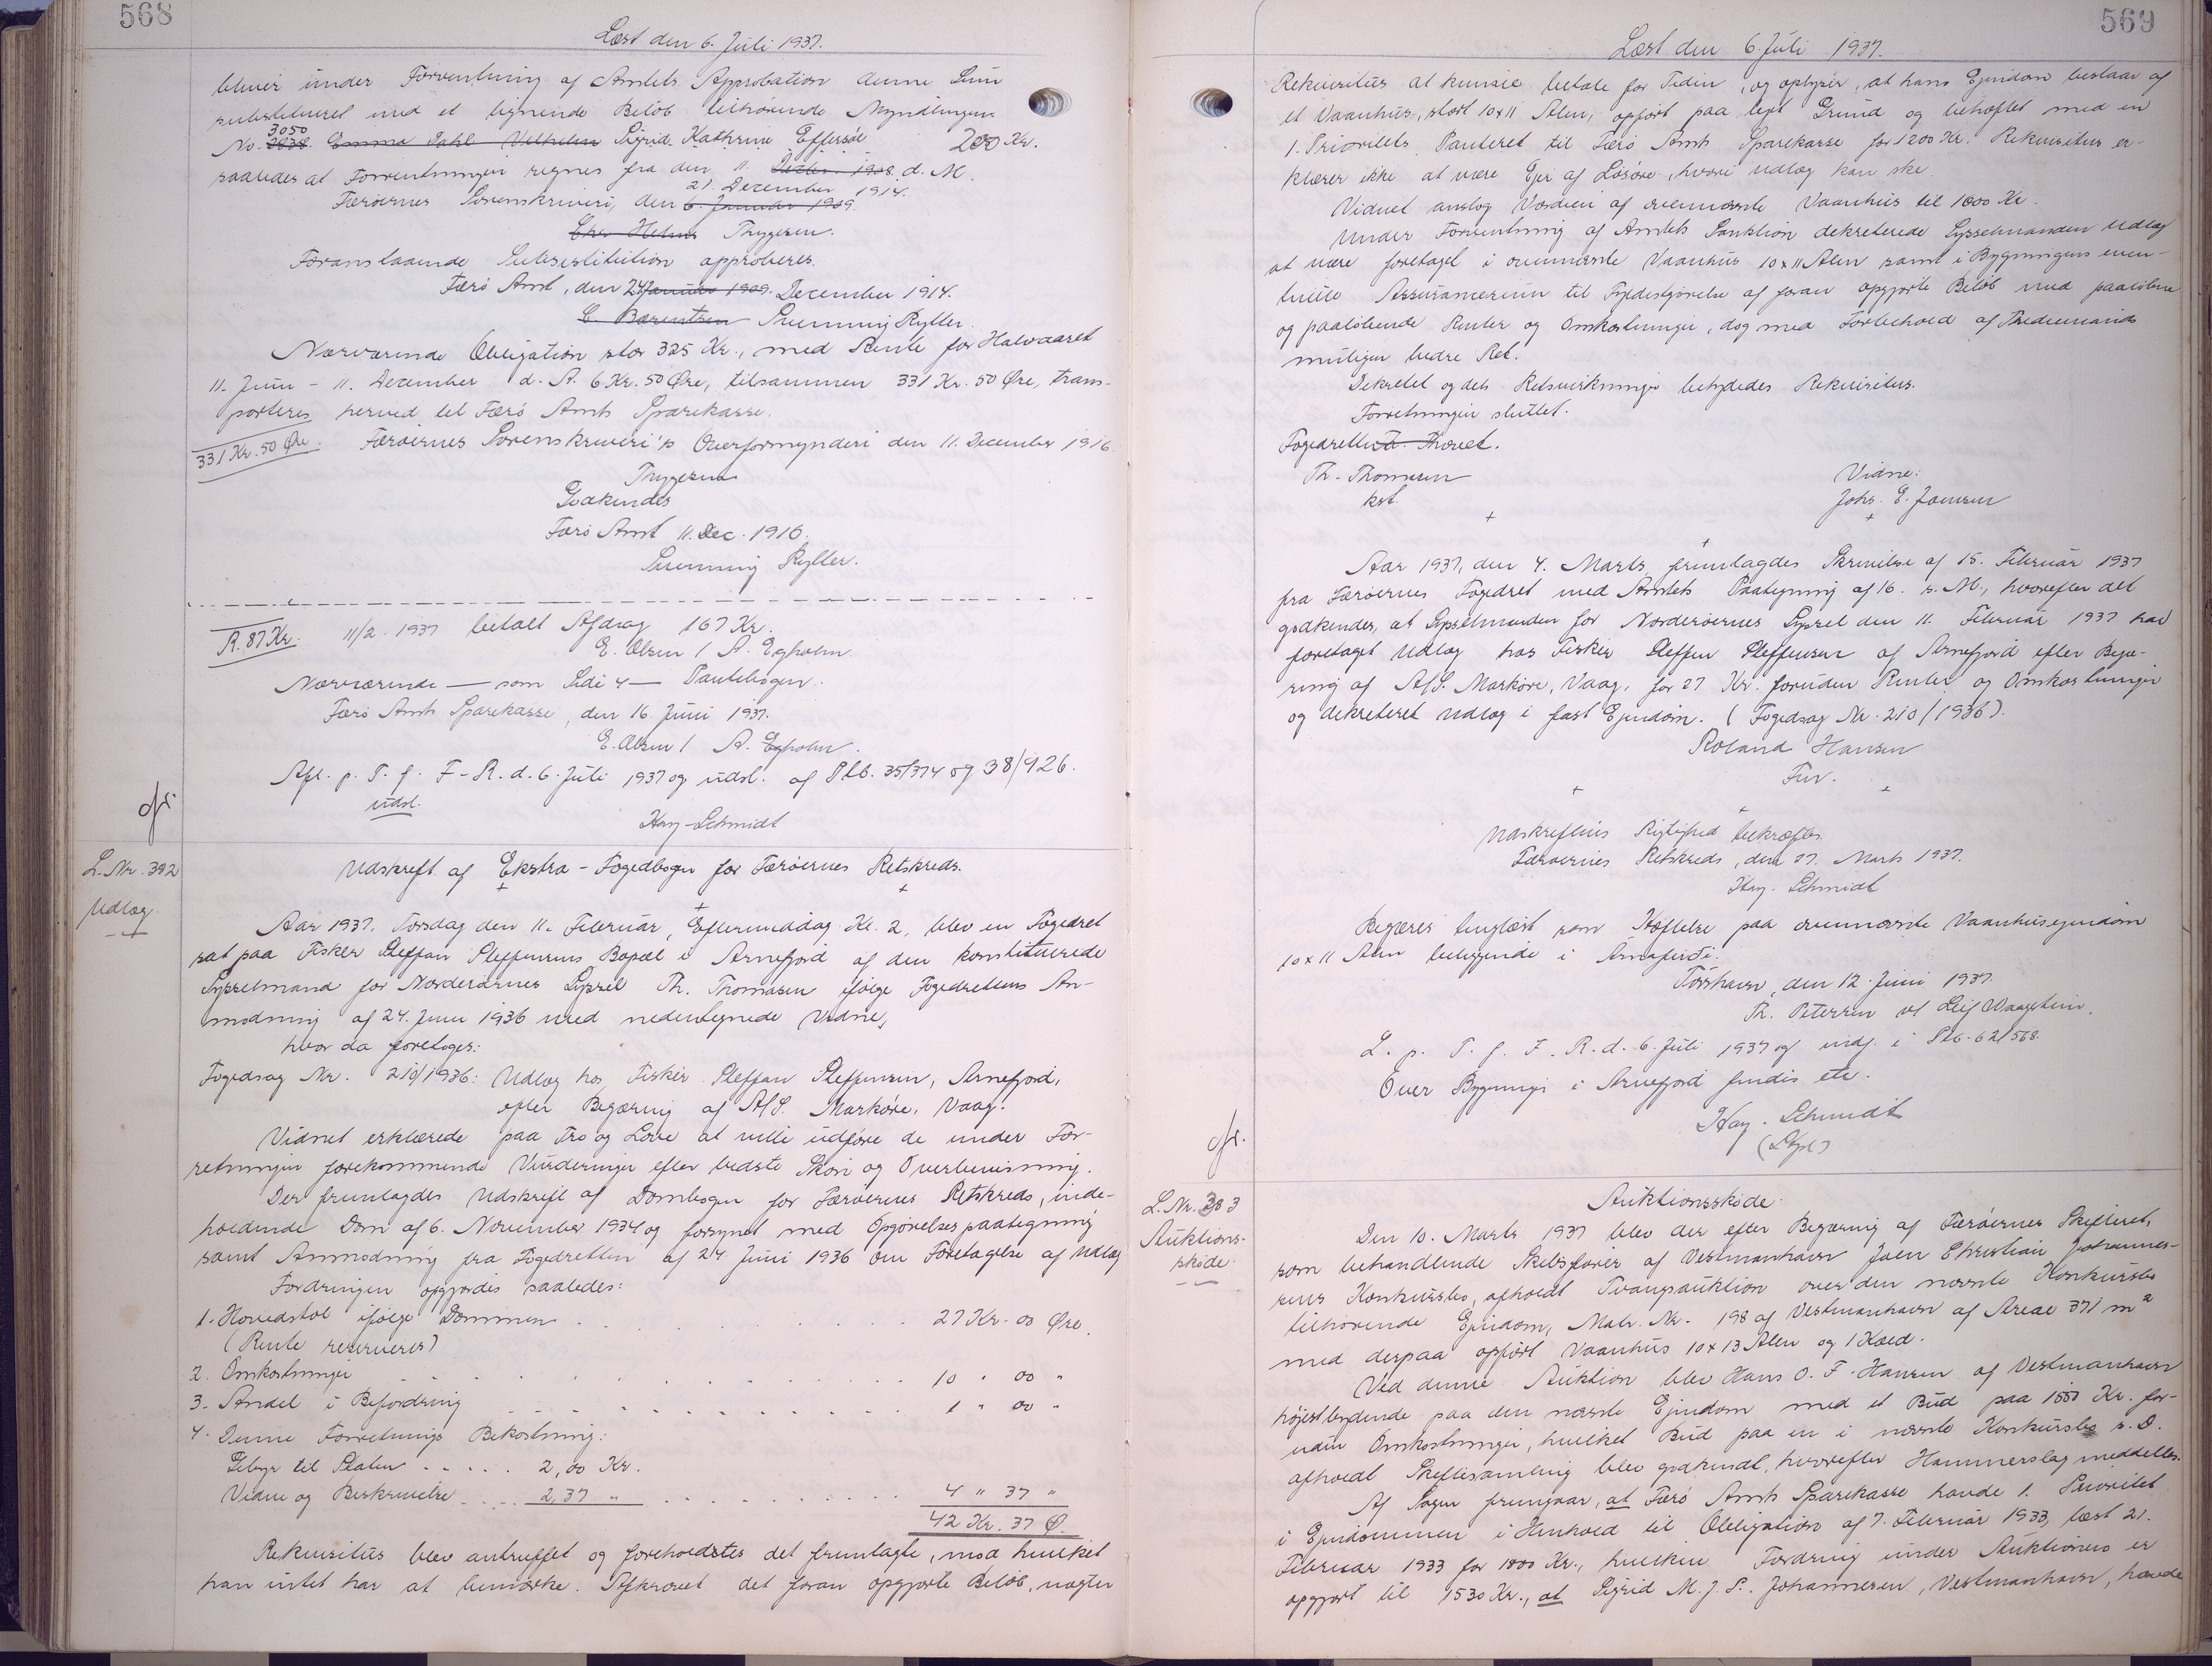 568
Læst den 6. Juli 1937.
bliver under Forventning af Amtets Approbation denne Sum
substitueret med et lignende Beløb tilhørende Myndlingen
3050
No. 2838. Emma Dahl Vilhelm Sigrid Kathrine Effersøe 200 Kr.
saaledes at Forrentningen regnes fra den 11. Decbr. 1908. d. M.
21. December 1914.
Færøernes Sorenskriveri, den 6. Januar 1909.
Chr. Helms Thygesen.
Foranstaaende Substitution approberes.
Færø Amt, den 24 Januar 1909. December 1914.
C. Bærentsen Svenning Rytter.
Nærværende Obligation stor 325 Kr., med Rente for Halvaaret
11. Juni - 11. December d. A. 6 Kr. 50 Øre, tilsammen 331 Kr. 50 Øre, trans-
porteres herved til Færø Amts Sparekasse.
331 Kr. 50 Øre. Færøernes Sorenskriveri's Overformynderi den 11. December 1916.
Thygesen
Godkendes
Færø Amt 11. Dec. 1916.
Svenning Rytter.
R. 87 Kr. 11/2. 1937 betalt Afdrag 167 Kr.
E. Olsen / A. Egholm.
Nærværende — som Side 4 — Pantebogen.
Færø Amts Sparekasse, den 16. Juni 1937.
E. Olsen / A. Egholm.
Afl. p. T. f. F-R. d. 6. Juli 1937 og udsl. af Ptb. 35/374 og 38/926.
udsl.
Hay-Schmidt
cfr.
L. Nr. 392
Udlæg.
Udskrift af Ekstra-Fogedbogen for Færøernes Retskreds.
Aar 1937, Torsdag den 11. Februar, Eftermiddag Kl. 2, blev en Fogedret
sat paa Fisker Steffan Steffensens Bopæl i Arnefjord af den konstituerede
Sysselmand for Norderøernes Syssel Th. Thomasen ifølge Fogedrettens An-
modning af 24. Juni 1936 med nedentegnede Vidne,
hvor da foretoges:
Fogedsag Nr. 210/1936: Udlæg hos Fisker Steffan Steffensen, Arnefjord,
efter Begæring af A/S. Marköre, Vaag.
Vidnet erklærede paa Tro og Love at ville udføre de under For-
retningen forekommende Vurderinger efter bedste Skøn og Overbevisning.
Der fremlagdes Udskrift af Dombogen for Færøernes Retskreds, inde-
holdende Dom af 6. November 1934 og forsynet med Opgørelsespaategning
samt Anmodning fra Fogedretten af 24 Juni 1936 om Foretagelse af Udlæg
Fordringen opgjordes saaledes:
1. Hovedstol ifølge Dommen . . . 27 Kr. 00 Øre.
(Rente reserveres)
2. Omkostninger . . . 10 " 00 "
3. Andel i Befordring . . . 1 " 00 "
4. Denne Forretnings Bekostning:
Gebyr til Staten . . . . . 2,00 Kr.
Vidne og Beskrivelse . . . . 2,37 " . . . 4 " 37 "
42 Kr. 37 Ø.
Rekvisitus blev antruffet og foreholdtes det fremlagte, mod hvilket
han intet har at bemærke. Afkrævet det foran opgjorte Beløb, nægter
569
Læst den 6. Juli 1937.
Rekvisitus at kunne betale for Tiden, og oplyser, at hans Ejendom bestaar af
et Vaanhus, stort 10x11 Alen, opført paa lejet Grund og behæftet med en
1. Prioritets Panteret til Færø Amts Sparekasse for 1200 Kr. Rekvisitus er-
klærer ikke at være Ejer af Løsøre, hvori Udlæg kan ske.
Vidnet anslog Værdien af ovennævnte Vaanhus til 1800 Kr.
Under Forventning af Amtets Sanktion dekreterede Sysselmanden Udlæg
at være foretaget i ovennævnte Vaanhus 10x11 Alen samt i Bygningens even-
tuelle Assurancesum til Fyldestgørelse af foran opgjorte Beløb med paaløbne
og paaløbende Renter og Omkostninger, dog med Forbehold af Trediemands
muligen bedre Ret.
Dekretet og dets Retsvirkninger betydedes Rekvisitus.
Forretningen sluttet.
Fogedretten hævet.
Th. Thomasen
kst.
Vidne:
Johs. E. Joensen
Aar 1937, den 4. Marts, fremlagdes Skrivelse af 15. Februar 1937
fra Færøernes Fogedret med Amtets Paategning af 16. s. M., hvorefter det
godkendes, at Sysselmanden for Norderøernes Syssel den 11. Februar 1937 har
foretaget Udlæg hos Fisker Steffen Steffensen af Arnefjord efter Begæ-
ring af A/S. Marköre, Vaag, for 27 Kr. foruden Renter og Omkostninger
og dekreteret Udlæg i fast Ejendom. (Fogedsag Nr. 210/1936).
Roland Hansen
Fm.
Udskriftens Rigtighed bekræftes.
Færøernes Retskreds, den 27. Marts 1937.
Hay-Schmidt
Begæres tinglæst som Hæftelse paa ovennævnte Vaanhusejendom
10x11 Alen beliggende i Árnafirði.
Tórshavn, den 12. Juni 1937.
Th. Petersen v/ Leif Waagstein.
L. p. T. f. F. R. d. 6. Juli 1937 og indf. i Ptb. 62/568.
Over Bygninger i Arnefjord findes etc.
Hay-Schmidt
cfr.
L. Nr. 383
Auktions-
skøde.
Auktionsskøde.
Den 10. Marts 1937 blev der efter Begæring af Færøernes Skifteret,
som behandlende Skibsfører af Vestmanhavn Joen Christian Johannes-
sens Konkursbo, afholdt Tvangsauktion over den nævnte Konkursbo
tilhørende Ejendom, Matr. Nr. 198 af Vestmanhavn af Areal 371 m²
med derpaa opført Vaanhus 10x13 Alen og 1 Kæld.
Ved denne Auktion blev Hans O. F. Hansen af Vestmanhavn
højestbydende paa den nævnte Ejendom med et Bud paa 1550 Kr. for-
uden Omkostninger, hvilket Bud paa en i nævnte Konkursbo s. D.
afholdt Skiftesamling blev godkendt, hvorefter Hammerslag meddeltes.
Af Sagen fremgaar, at Færø Amts Sparekasse havde 1. Prioritet
i Ejendommen i Henhold til Obligation af 7. Februar 1933, læst 21.
Februar 1933 for 1800 Kr., hvilken Fordring under Auktionen er
opgjort til 1530 Kr., at Sigrid M. J. S. Johannesen, Vestmanhavn, havde